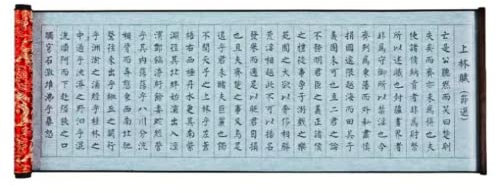 上林賦(節選)
亡是公聽然而笑曰楚則
失矣而齊亦未為得也夫
使諸侯納貢者非為財幣
所以述職也封疆畫界者
非為守禦所以禁淫也今
齊列為東藩而外私肅慎
捐國逾限越海而田其于
義固未可也且二君之論
不務明君臣之義正諸侯
之禮徒事爭于游戲之樂
苑囿之大欲以奢侈相勝
荒淫相越此不可以揚名
發譽而適足以貶君自損
也且夫齊楚之事又烏足
道乎君未睹夫巨麗也獨
不聞天子之上林乎左蒼
梧右西極丹水更其南紫
淵徑其北終始灞滻出入涇
渭酆鎬潦潏紆餘委蛇經營
乎其內蕩蕩乎八川分流
相背而異態東西南北馳
騖往來出乎椒丘之闕行
乎洲淤之浦經乎桂林之
中過乎泱漭之野汨乎混
流順阿而下赴隘狹之口
觸穹石激堆埼沸乎暴怒